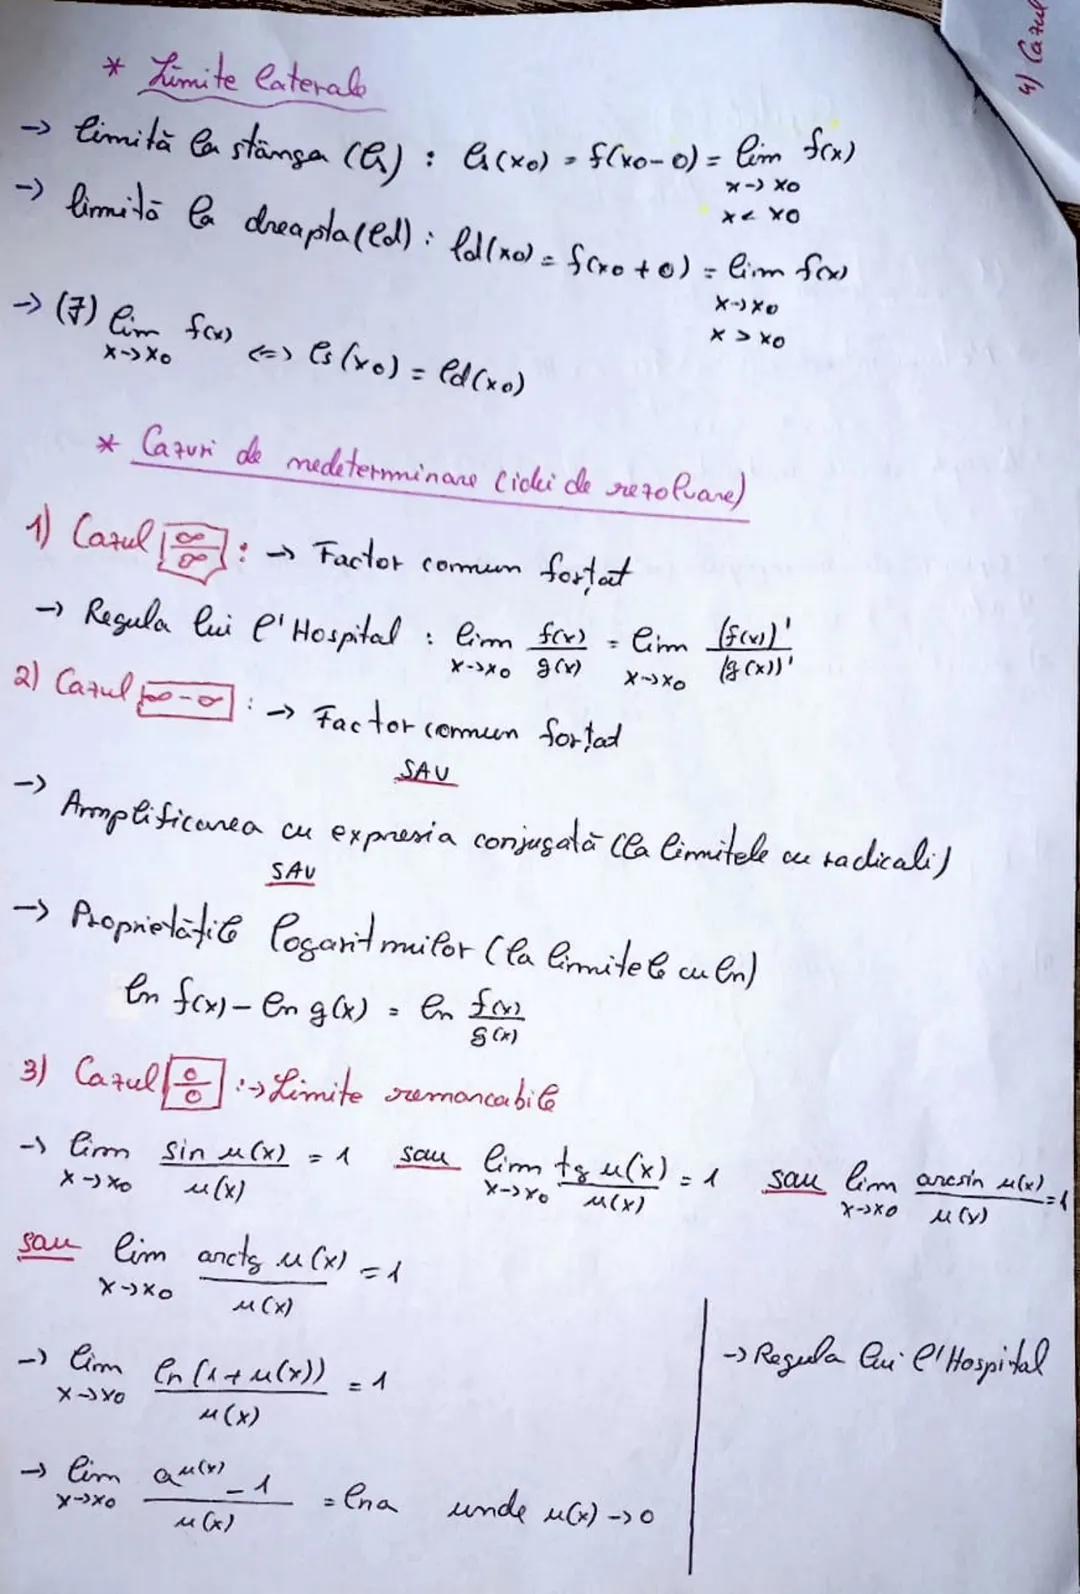 4) Cazul
* Limite laterale
→ limită la stânga (ls) : ls(x0) = f(x0-0) = lim f(x)
x→x0
x<x0
→ limită la dreapta (ld) : ld(x0) = f(x0+0) = lim f(x)
x→x0
x>x0
→ (∃) lim f(x) <=> ls(x0) = ld(x0)
x→x0
* Cazuri de nedeterminare (idei de rezolvare)
1) Cazul ∞/∞ : → Factor comun forțat
→ Regula lui l'Hospital : lim f(x)/g(x) = lim (f(x))'/(g(x))'
x→x0 x→x0
2) Cazul ∞-∞ : → Factor comun forțat
SAU
→ Amplificarea cu expresia conjugată (la limitele cu radicali)
SAU
→ Proprietățile logaritmilor (la limitele cu ln)
ln f(x) - ln g(x) = ln f(x)/g(x)
3) Cazul 0/0 : → Limite remarcabile
→ lim sin u(x)/u(x) = 1 sau lim tg u(x)/u(x) = 1 sau lim arcsin u(x)/u(x) = 1
x→x0 x→x0 x→x0
sau lim arctg u(x)/u(x) = 1
x→x0
→ lim ln(1+u(x))/u(x) = 1
x→x0
→ Regula lui l'Hospital
→ lim a^u(x) - 1/u(x) = ln a unde u(x) → 0
x→x0